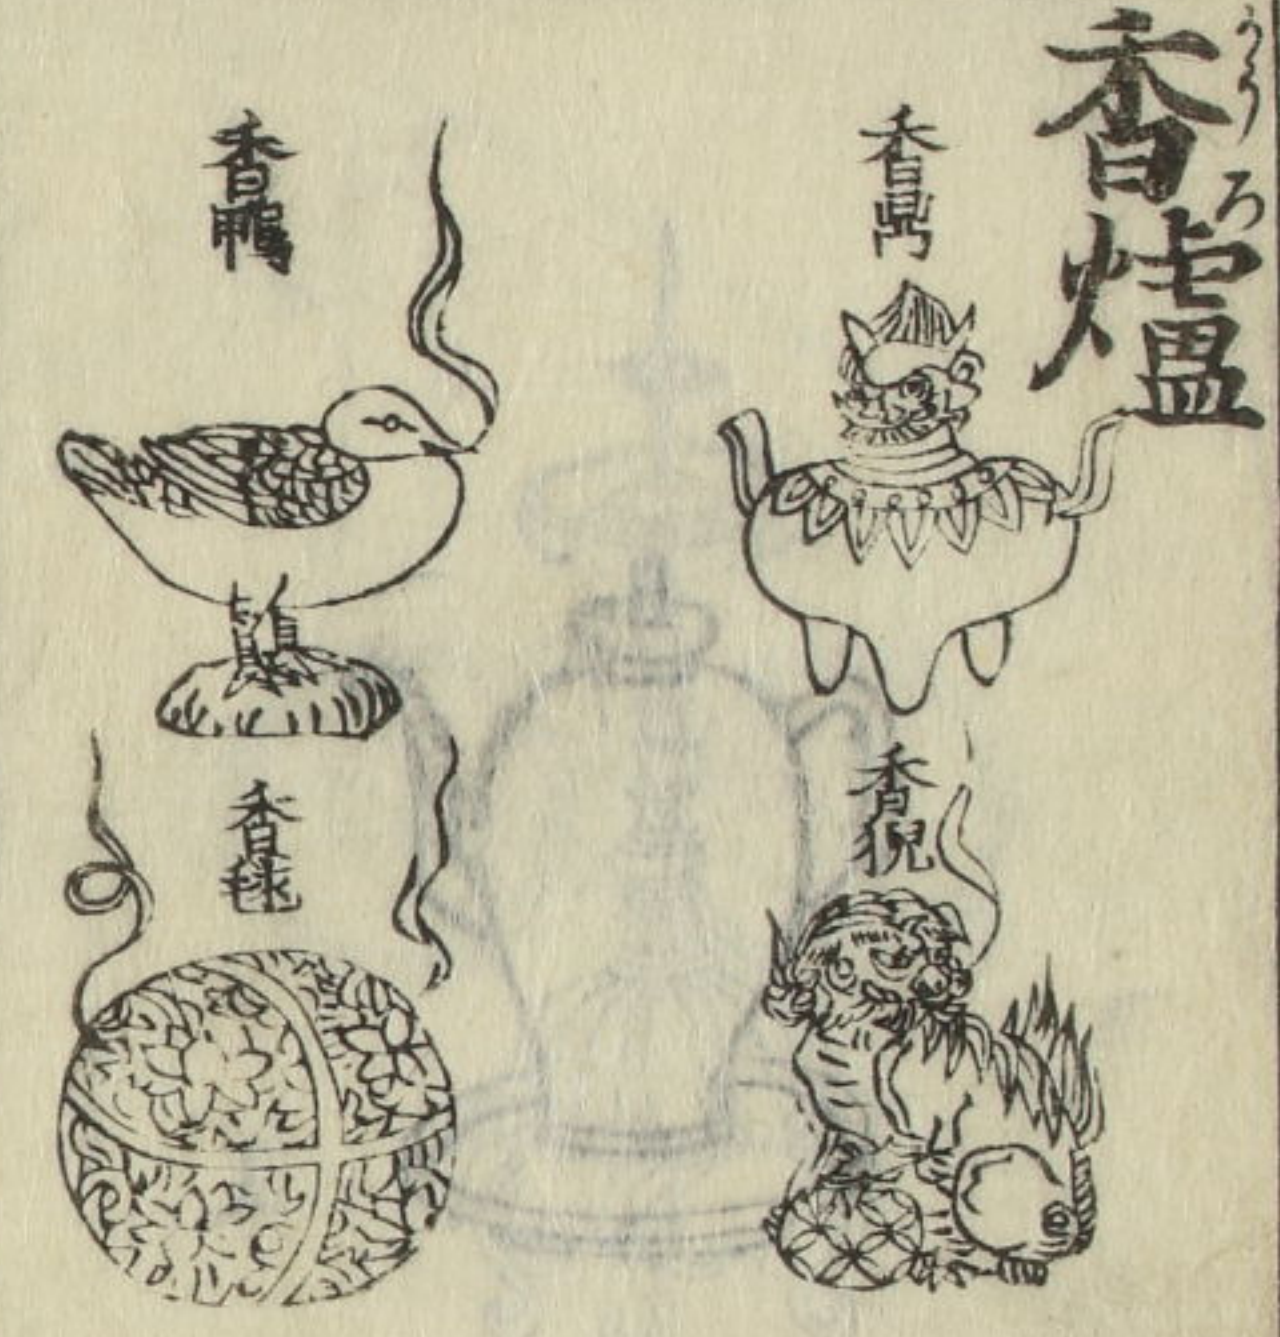 香爐
かうろ
香鼎
香猊
香鴨
香毬